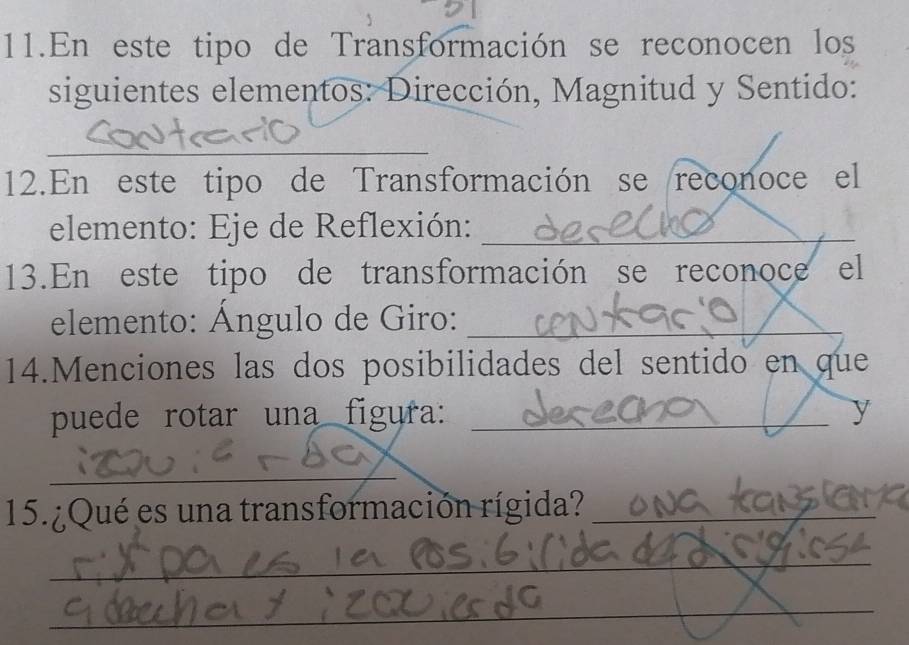 11.En este tipo de Transformación se reconocen los
siguientes elementos: Dirección, Magnitud y Sentido:
contrario
12.En este tipo de Transformación se reconoce el
elemento: Eje de Reflexión: derecho
13.En este tipo de transformación se reconoce el
elemento: Ángulo de Giro: contrario
14.Menciones las dos posibilidades del sentido en que
puede rotar una figura: derecha y
15.¿Qué es una transformación rígida? una
es la